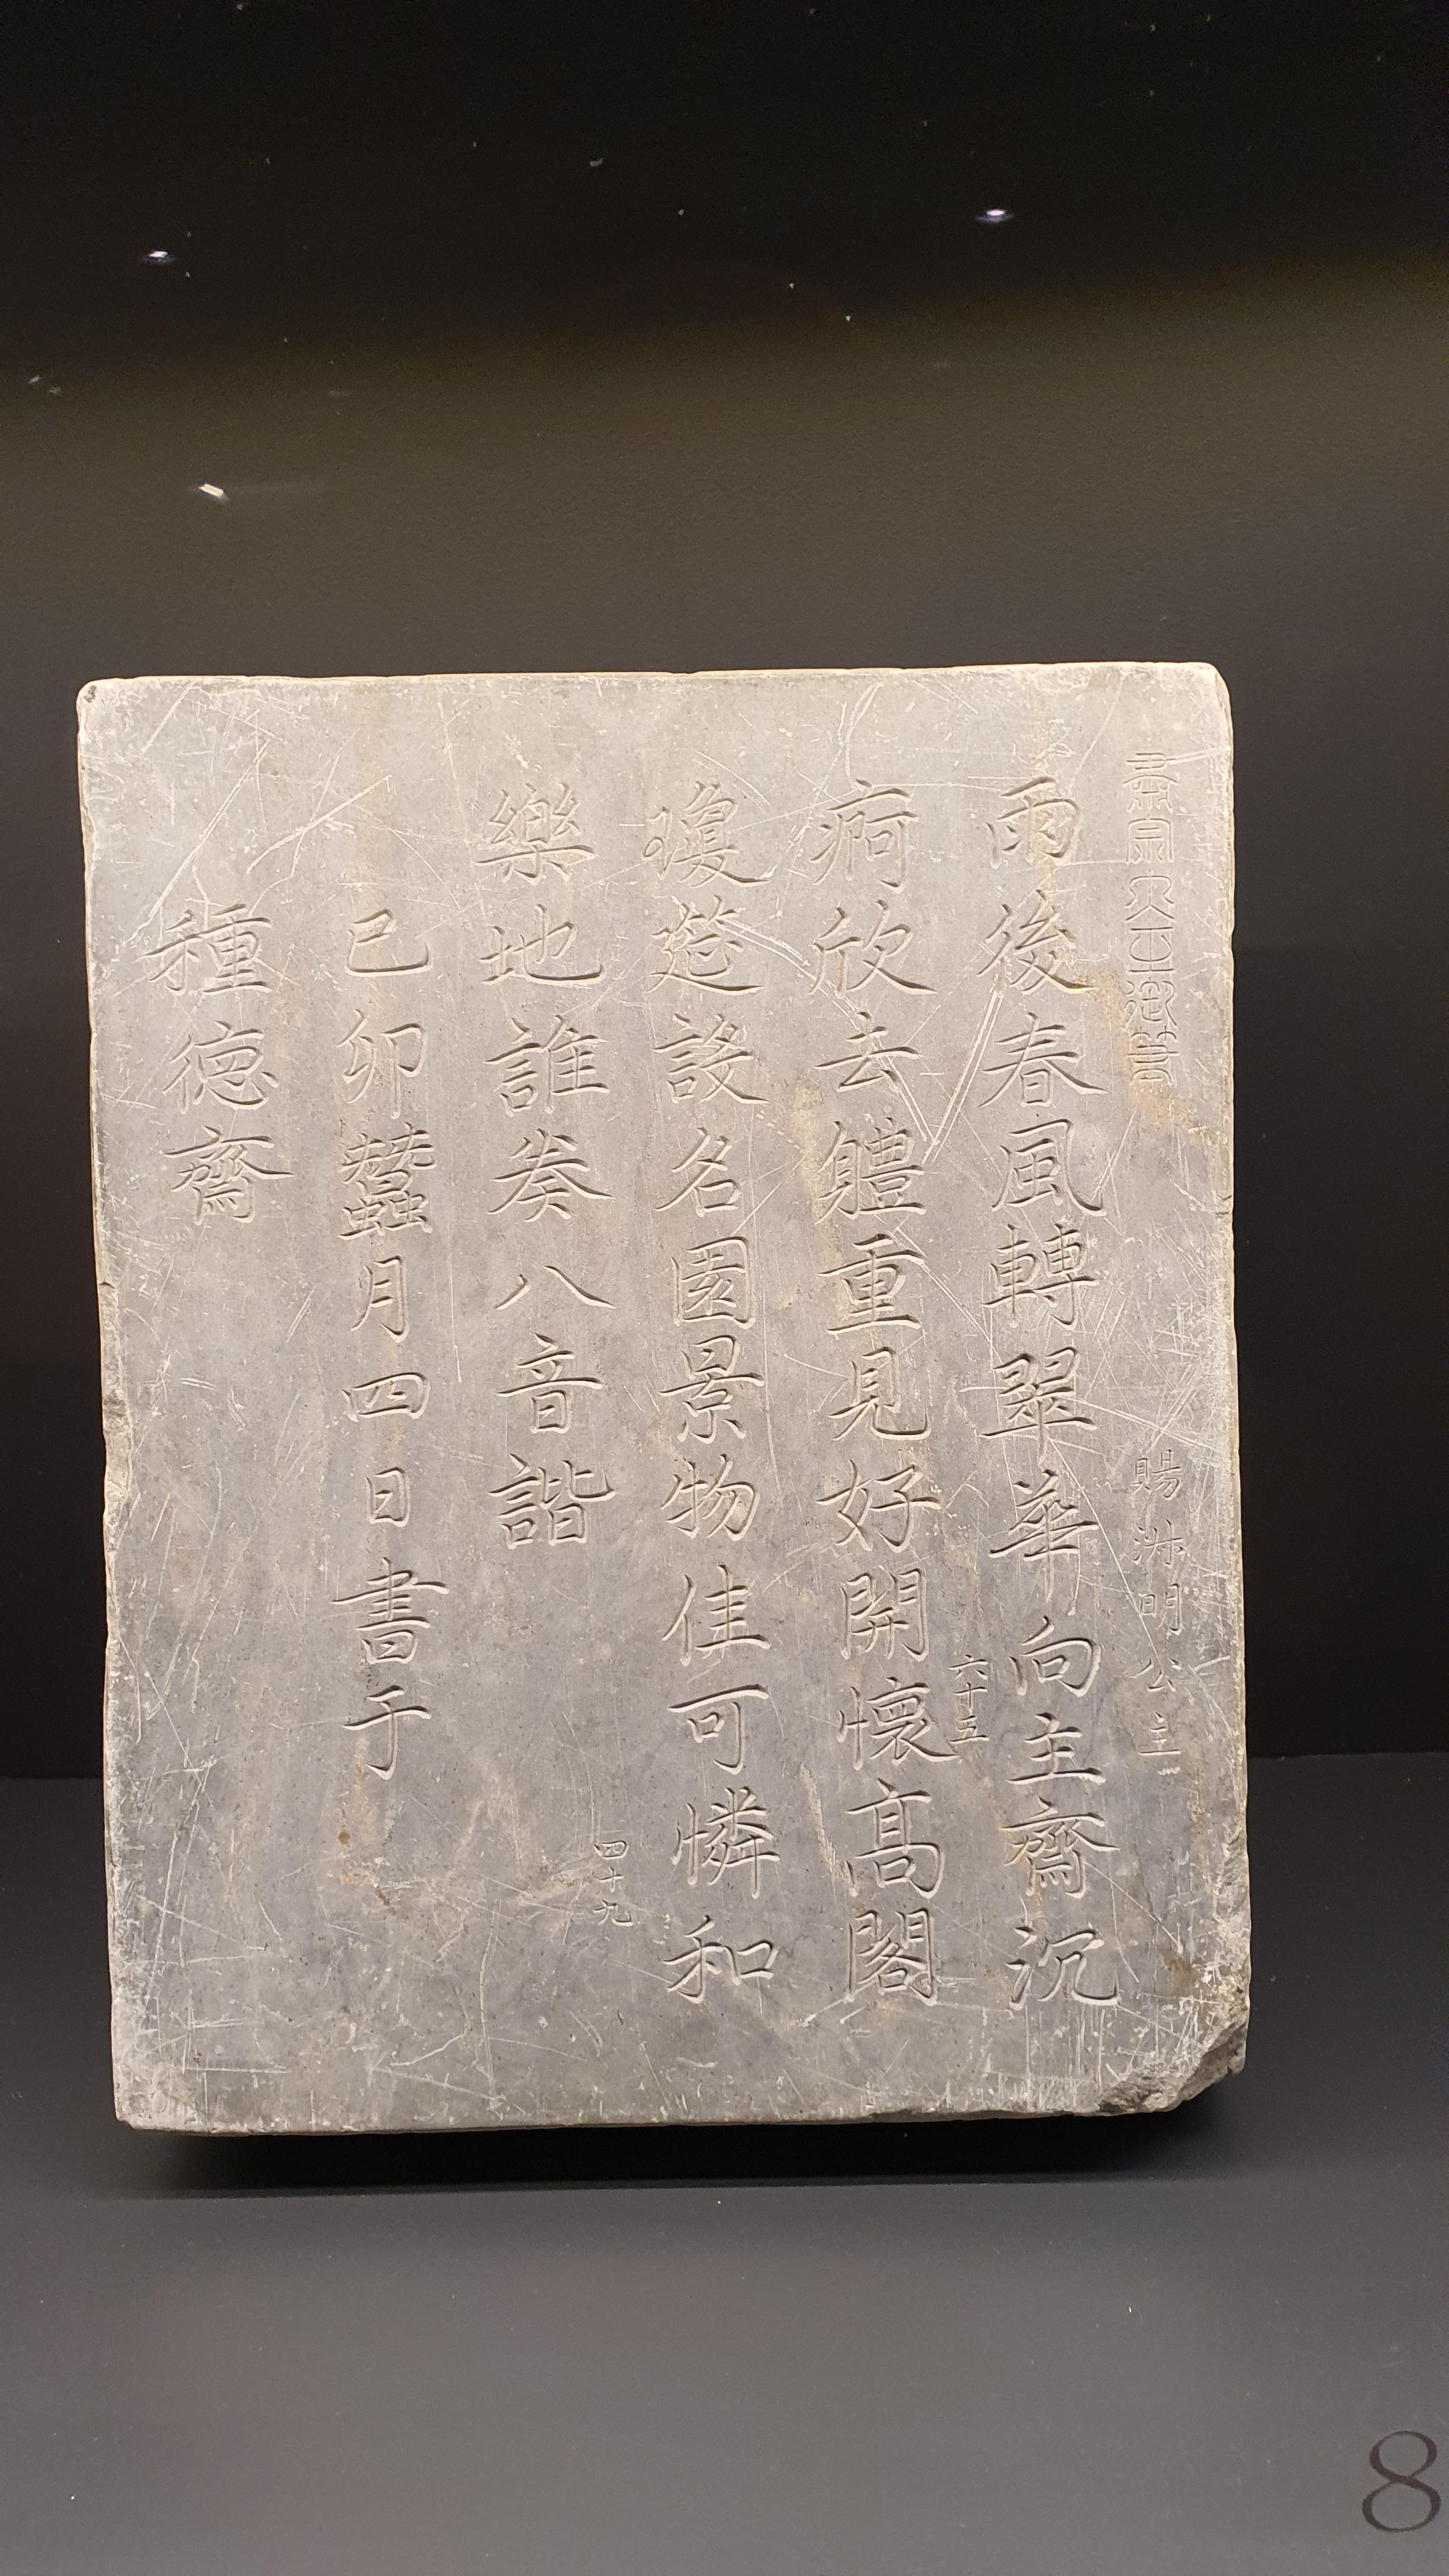 肅宗大王御筆
賜淑明公主
雨後春風轉翠華向主齋沉
六十五
痾欣去軆重見好開懷高閣
瓊莚設名園景物佳可憐和
四十九
樂地誰奏八音諧
己卯蠶月四日書于
種德齋
8